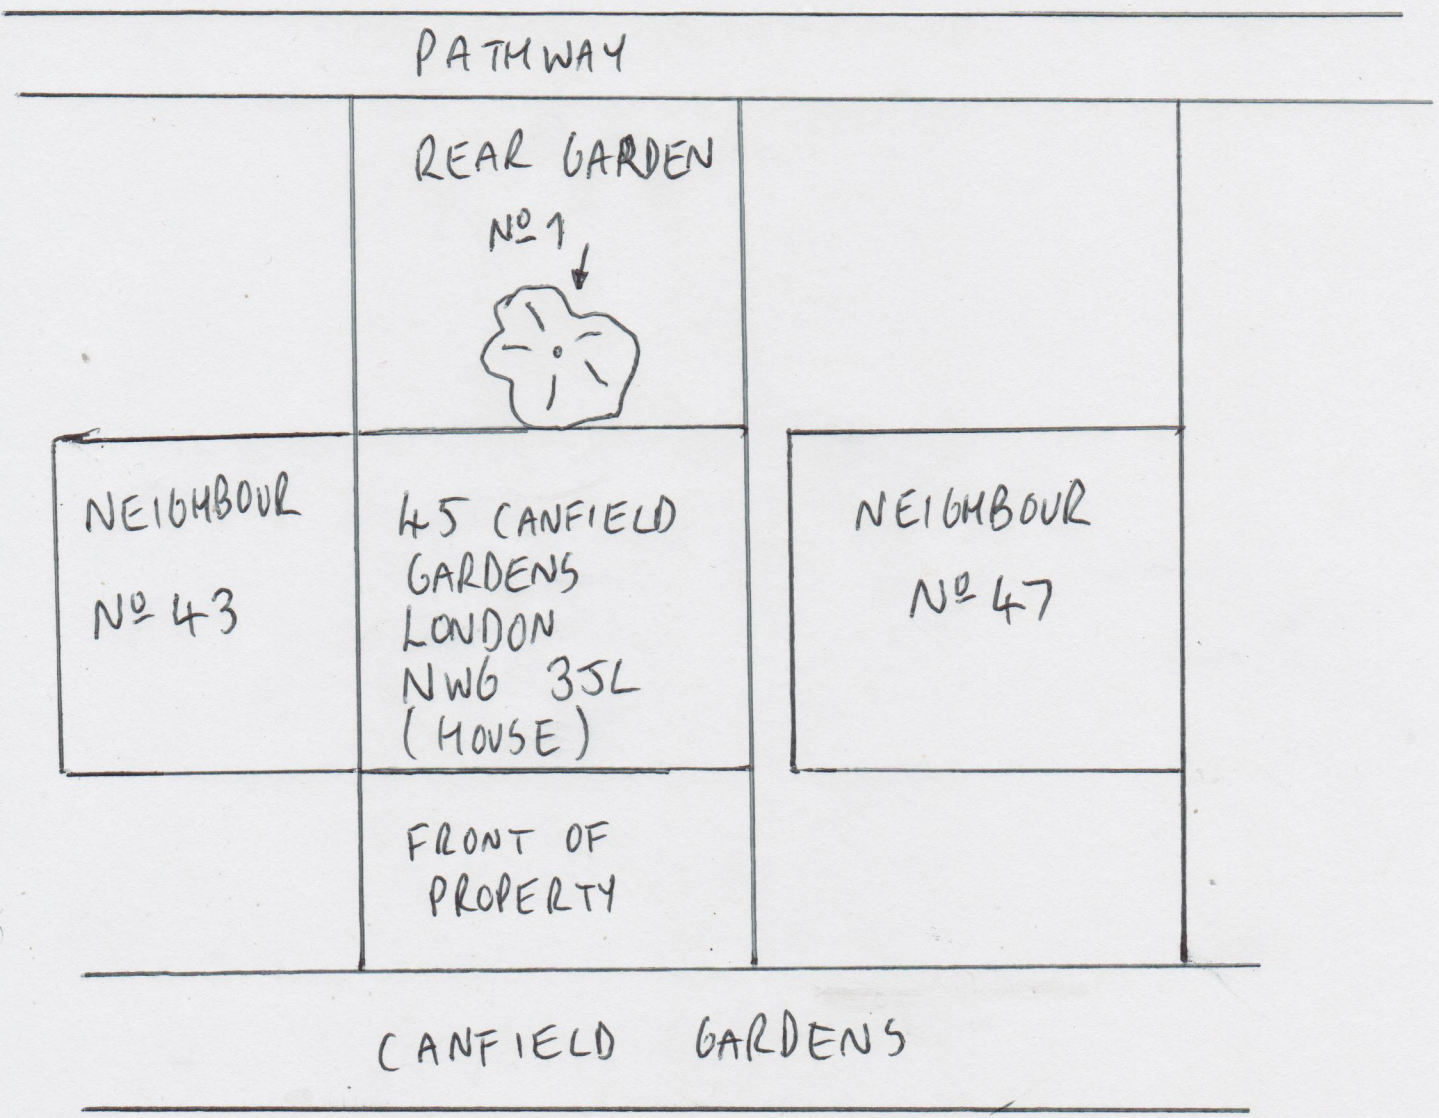 PATHWAY
REAR GARDEN
Nº 1
NEIGHBOUR
Nº 43
45 CANFIELD
GARDENS
LONDON
NW6 3JL
(HOUSE)
NEIGHBOUR
Nº 47
FRONT OF
PROPERTY
CANFIELD GARDENS